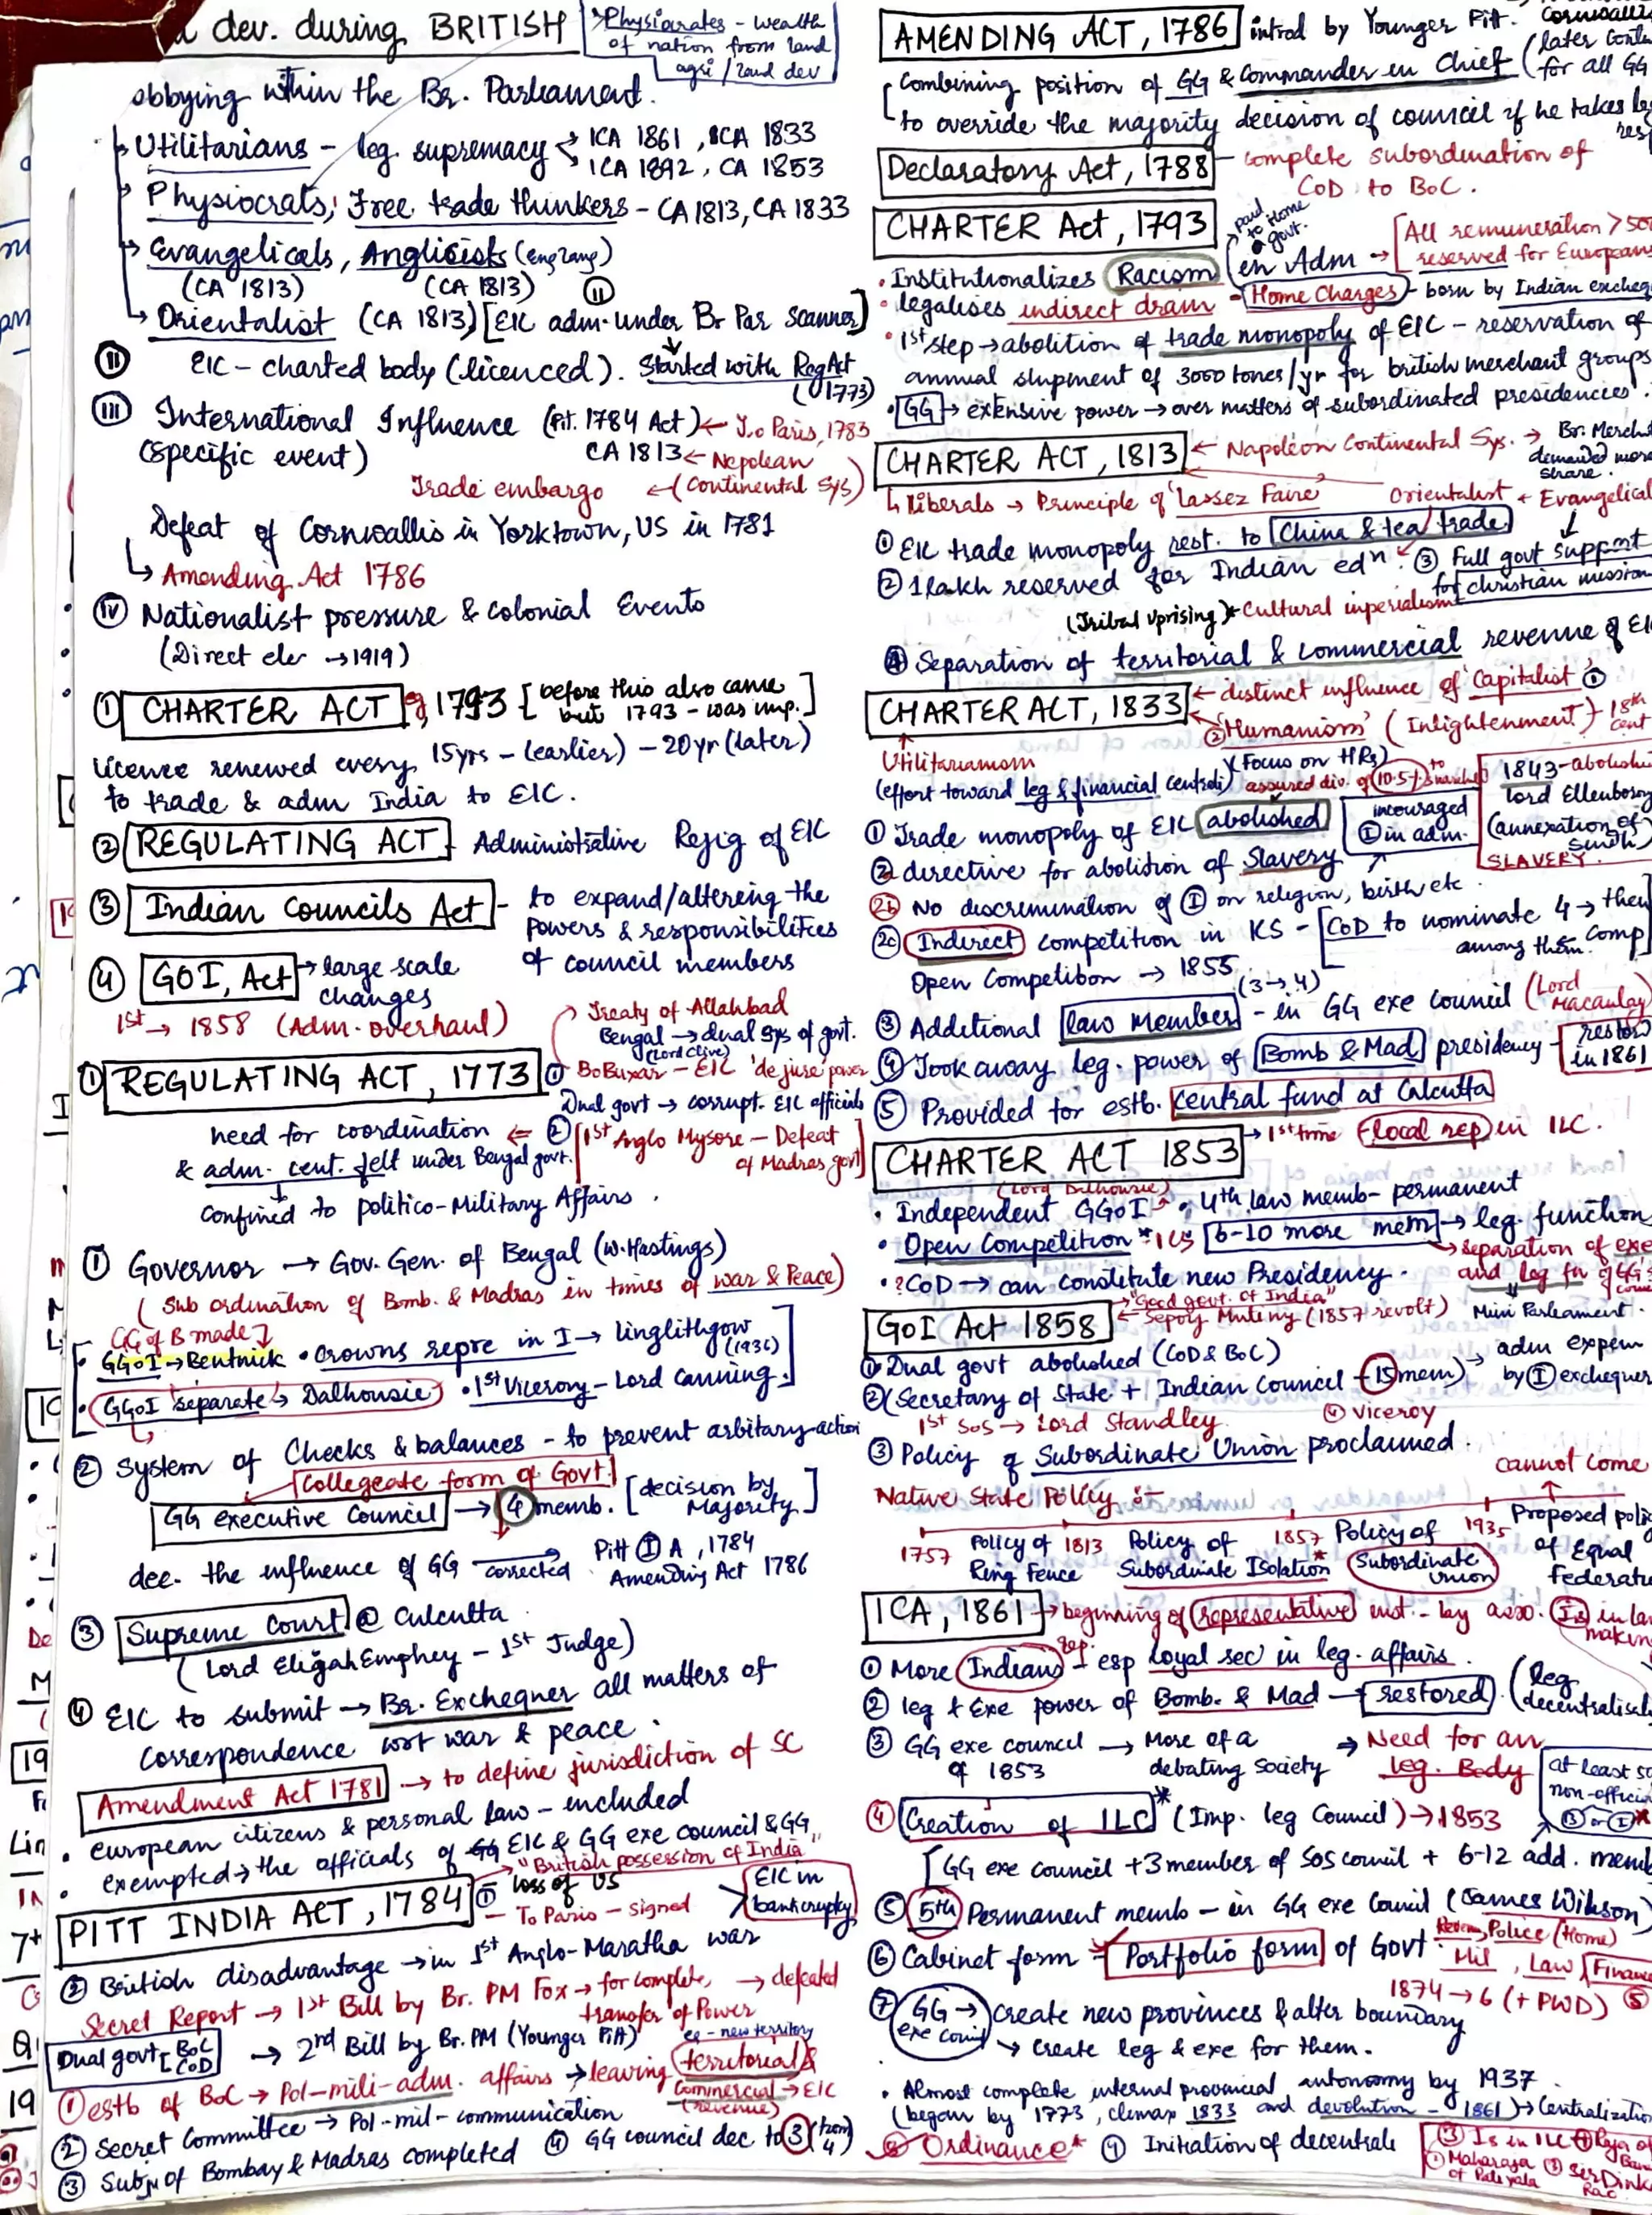 dev. during BRITISH
Physiocrates - wealth
of nation from land
agri / land dev
obbying within the Br. Parliament.
Utilitarians - leg. supremacy < ICA 1861, CA 1833
ICA 1892, CA 1853
Physiocrats, Free trade thinkers - CA 1813, CA 1833
Evangelicals, Anglicists (eng lang)
(CA 1813) (CA 1813) (II)
Orientalist (CA 1813) [EIC adm. under Br Par scanner]
(II) EIC - charted body (licenced). Started with Reg Act
(1773)
(III) International Influence (Pit. 1784 Act) ← T.o Paris, 1783
(Specific event) CA 1813 ← Nepolean
Trade embargo ← (Continental Sys)
Defeat of Cornwallis in Yorktown, US in 1781
↳ Amending Act 1786
(IV) Nationalist pressure & colonial Events
(Direct ele → 1919)
① CHARTER ACT eg, 1793 [before this also came
but 1793 - was imp.]
licence renewed every 15yrs - (earlier) - 20yr (later)
to trade & adm India to EIC.
② REGULATING ACT - Administrative Rejig of EIC
③ Indian Councils Act - to expand/altering the
powers & responsibilities
of council members
④ GOI, Act → large scale
changes
1st → 1858 (Adm. overhaul)
Treaty of Allahbad
Bengal → dual sys of govt.
(Lord Clive)
① REGULATING ACT, 1773 ① BoBuxar - EIC 'de jure' power
Dual govt → corrupt. EIC officials
need for coordination ⇐ ② [1st Anglo Mysore - Defeat
of Madras govt]
& adm. cent. felt under Bengal govt.
confined to politico-Military Affairs.
① Governor → Gov. Gen. of Bengal (W. Hastings)
(Sub ordination of Bomb. & Madras in times of war & Peace)
GG of B made
• GGoI → Bentnick • Crowns repre in I → linglithgow
(1936)
• GGoI separate → Dalhousie • 1st Viceroy - Lord canning.
② System of Checks & balances - to prevent arbitary action
Collegeate form of Govt.
GG executive Council → ④ memb. [decision by
Majority]
dec. the influence of GG → corrected Pitt (I) A, 1784
Amending Act 1786
③ Supreme Court @ Culcutta
(Lord Eligah Emphey - 1st Judge)
④ EIC to submit → Br. Exchequer all matters of
correspondence wrt war & peace.
Amendment Act 1781 → to define jurisdiction of SC
• european citizens & personal law - included
• exempted → the officials of EIC & GG exe council & GG
"British possession of India"
PITT INDIA ACT, 1784 ① - loss of US
- To Paris - signed
EIC in
bankcruptcy
② British disadvantage → in 1st Anglo-Maratha war
Secret Report → 1st Bill by Br. PM Fox → for complete → defeated
transfer of Power
Dual govt [BoC
CoD → 2nd Bill by Br. PM (Younger Pitt)
- new territory
① estb of BoC → Pol-mili-adm. affairs → leaving territorial &
Commercial → EIC
(revenue)
② Secret Committee → Pol-mil-communication
④ GG council dec to ③ (from 4)
③ Subj of Bombay & Madras completed
AMENDING ACT, 1786 introd by Younger Pitt. Cornwall
(later cont
for all GG
Combining position of GG & Commander in Chief
to override the majority decision of council if he takes
res
Declaratory Act, 1788 - complete subordination of
CoD to BoC.
CHARTER Act, 1793
paid
to Home
govt.
• Institutionalizes Racism en Adm → [All remuneration > 50
reserved for European
• legalises indirect drain - Home Charges - born by Indian excheq
• 1st step → abolition of trade monopoly of EIC - reservation of
annual shipment of 3000 tones/yr for british merchant groups
• GG → extensive power → over matters of subordinated presidencies.
CHARTER ACT, 1813 ← Napoleon Continental Sys. → Br. Merch
demanded more
share.
↳ liberals → Principle of 'Lassez Faire' Orientalist + Evangelical
① EIC trade monopoly rest. to China & tea trade
② 1 lakh reserved for Indian edn. ③ Full govt support
for christian mission
(Tribal Uprising) ← Cultural inperialism
④ Separation of territorial & commercial revenue of EI
CHARTER ACT, 1833 ← distinct influence of 'Capitalist' ①
② 'Humanism' (Inlightenment) - 18th
cent
Utilitarianism (Focus on HRs)
(effort toward leg & financial centrali) assured div. of 10.5% to
1843 - abolish
lord Ellenboro
(annexation of
sindh)
SLAVERY.
① Trade monopoly of EIC abolished
incouraged
(I) in adm.
② directive for abolition of Slavery
②b No discrimination of (I) on religion, birth etc.
②c Indirect competition in KS - [CoD to nominate 4 → then
comp
among them.
Open Competition → 1855
(3→4)
③ Additional law Member - in GG exe council (Lord
Macaulay)
④ Took away leg. power of Bomb & Mad presidency - restor
in 1861
⑤ Provided for estb. central fund at Calcutta
CHARTER ACT 1853 → 1st time local rep in ILC.
(Lord Dalhousie)
• Independent GGoI • 4th law memb - permanent
• Open Competition * ICS 6-10 more mem → leg. function
→ separation of exe
and leg fn of GG's
• ? CoD → can constitute new Presidency.
Mini Parleament.
GoI Act 1858 → "Good govt. of India"
← Sepoy Mutiny (1857 revolt)
① Dual govt abolished (CoD & BoC)
② (Secretary of State + Indian Council - 15 mem) → adm expen
by (I) exchequer
1st SoS → Lord Standley. ④ Viceroy
③ Policy of Subordinate Union proclaimed.
cannot come
Native State Policy :-
1757 Policy of Ring Fence 1813 Policy of Subordinate Isolation* 1857 Policy of Subordinate Union 1935 Proposed poli
of Equal
Federati
ICA, 1861 → beginning of representative inst. - by asso. Is in la
making
rep.
① More Indians esp loyal sec in leg. affairs.
② leg + Exe power of Bomb. & Mad - restored. (leg.
decentralisat
③ GG exe council → More of a → Need for an
of 1853 debating society leg. Body
at least 50
non-officia
④ Creation of ILC* (Imp. leg Council) → 1853
[GG exe council + 3 member of SoS council + 6-12 add. memb
⑤ 5th Permanent memb - in GG exe Council (James Wilson)
⑥ Cabinet form - Portfolio form of Govt. Police (Home)
Mil, Law, Financ
1874 → 6 (+ PWD) ⑤
⑦ GG → create new provinces & alter boundary
exe
↳ create leg & exe for them.
• Almost complete internal provincial autonomy by 1937
(began by 1773, climax 1833 and devolution - 1861) → Centralization
⑧ Ordinance* ⑨ Initiation of decentrali
③ Is in ILC
① Maharaja
of Patiyala
③ Sir Dink
Rao